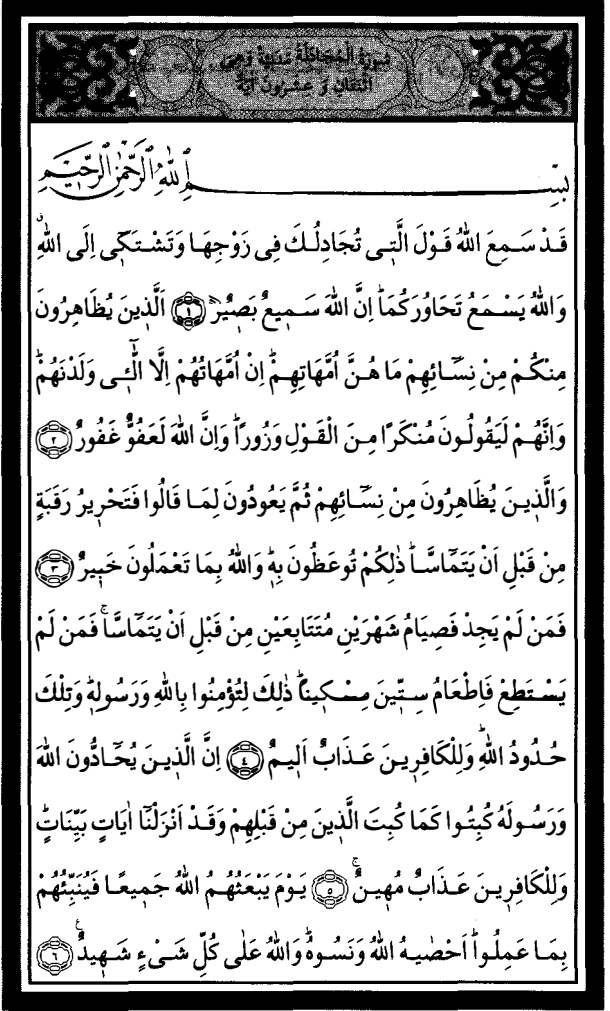 سُورَةُ الْمُجَادَلَةِ مَدَنِيَّةٌ وَهِيَ
اثْنَتَانِ وَ عِشْرُونَ آيَةً
بِسْمِ اللّٰهِ الرَّحْمٰنِ الرَّحِيمِ
قَدْ سَمِعَ اللّٰهُ قَوْلَ الَّتِى تُجَادِلُكَ فِى زَوْجِهَا وَتَشْتَكِى اِلَى اللّٰهِۗ
وَاللّٰهُ يَسْمَعُ تَحَاوُرَكُمَاۜ اِنَّ اللّٰهَ سَمِيعٌ بَصِيرٌ ﴿١﴾ اَلَّذِينَ يُظَاهِرُونَ
مِنْكُمْ مِنْ نِسَٓائِهِمْ مَا هُنَّ اُمَّهَاتِهِمْۜ اِنْ اُمَّهَاتُهُمْ اِلَّا الّٰٓـِٔى وَلَدْنَهُمْۜ
وَاِنَّهُمْ لَيَقُولُونَ مُنْكَرًا مِنَ الْقَوْلِ وَزُورًاۜ وَاِنَّ اللّٰهَ لَعَفُوٌّ غَفُورٌ ﴿٢﴾
وَالَّذِينَ يُظَاهِرُونَ مِنْ نِسَٓائِهِمْ ثُمَّ يَعُودُونَ لِمَا قَالُوا فَتَحْرِيرُ رَقَبَةٍ
مِنْ قَبْلِ اَنْ يَتَمَٓاسَّاۜ ذٰلِكُمْ تُوعَظُونَ بِهِۜ وَاللّٰهُ بِمَا تَعْمَلُونَ خَبِيرٌ ﴿٣﴾
فَمَنْ لَمْ يَجِدْ فَصِيَامُ شَهْرَيْنِ مُتَتَابِعَيْنِ مِنْ قَبْلِ اَنْ يَتَمَٓاسَّاۚ فَمَنْ لَمْ
يَسْتَطِعْ فَاِطْعَامُ سِتِّينَ مِسْكِينًاۜ ذٰلِكَ لِتُؤْمِنُوا بِاللّٰهِ وَرَسُولِهِۜ وَتِلْكَ
حُدُودُ اللّٰهِۜ وَلِلْكَافِرِينَ عَذَابٌ اَلِيمٌ ﴿٤﴾ اِنَّ الَّذِينَ يُحَٓادُّونَ اللّٰهَ
وَرَسُولَهُ كُبِتُوا كَمَا كُبِتَ الَّذِينَ مِنْ قَبْلِهِمْ وَقَدْ اَنْزَلْنَٓا اٰيَاتٍ بَيِّنَاتٍۜ
وَلِلْكَافِرِينَ عَذَابٌ مُهِينٌۚ ﴿٥﴾ يَوْمَ يَبْعَثُهُمُ اللّٰهُ جَمِيعًا فَيُنَبِّئُهُمْ
بِمَا عَمِلُواۜ اَحْصٰيهُ اللّٰهُ وَنَسُوهُۜ وَاللّٰهُ عَلٰى كُلِّ شَىْءٍ شَهِيدٌ ﴿٦﴾